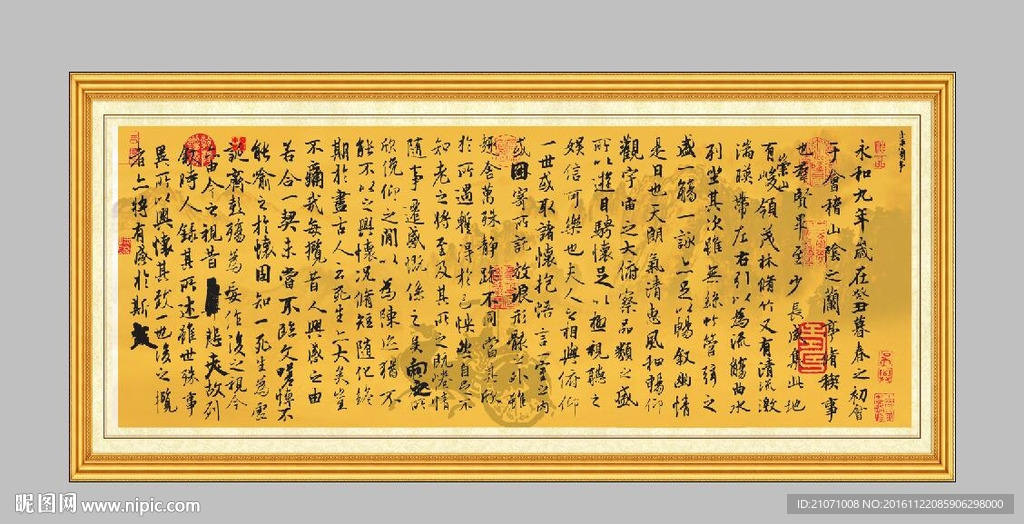 永和九年歲在癸丑暮春之初會
于會稽山陰之蘭亭脩稧事
也羣賢畢至少長咸集此地
有崇山峻領茂林脩竹又有清流激
湍暎帶左右引以為流觴曲水
列坐其次雖無絲竹管弦之
盛一觴一詠亦足以暢叙幽情
是日也天朗氣清惠風和暢仰
觀宇宙之大俯察品類之盛
所以遊目騁懷足以極視聽之
娛信可樂也夫人之相與俯仰
一世或取諸懷抱悟言一室之內
或因寄所託放浪形骸之外雖
趣舍萬殊靜躁不同當其欣
於所遇暫得於己怏然自足不
知老之將至及其所之既惓情
隨事遷感慨係之矣向之所
欣俛仰之閒以為陳迹猶不
能不以之興懷況脩短隨化終
期於盡古人云死生亦大矣豈
不痛哉每攬昔人興感之由
若合一契未嘗不臨文嗟悼不
能喻之於懷固知一死生為虛
誕齊彭殤為妄作後之視今
亦由今之視昔悲夫故列
敘時人錄其所述雖世殊事
異所以興懷其致一也後之攬
者亦將有感於斯文
昵图网 www.nipic.com
ID:21071008 NO:20161122085906298000